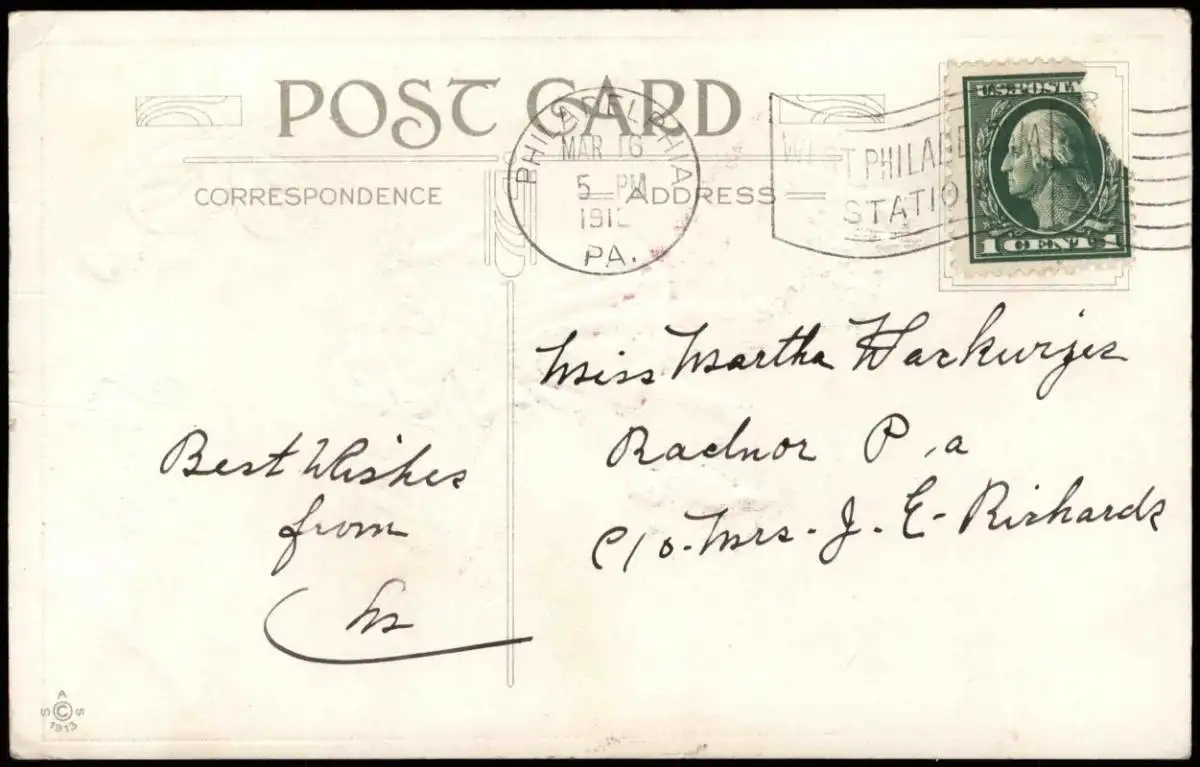 POST CARD
CORRESPONDENCE
ADDRESS
PHILADELPHIA
MAR 16
5 PM
191
PA.
WEST PHILADE
STATIO
U.S. POST
1 CENT 1
Miss Martha
Radnor P,a
c/o. Mrs. J. E. Richards
Best Wishes
from
A
S © S
1913